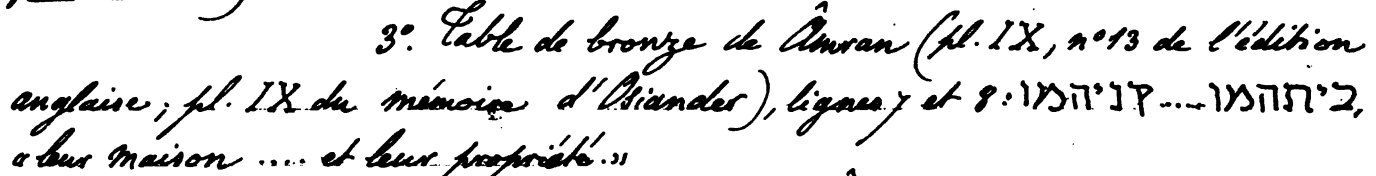 3º. Table de bronze de Âmran (pl. IX, nº 13 de l'édition
anglaise; pl. IX du mémoire d'Osiander), lignes 7 et 8: ביתהמו.....קניהמו,
« leur maison .... et leur propriété.»